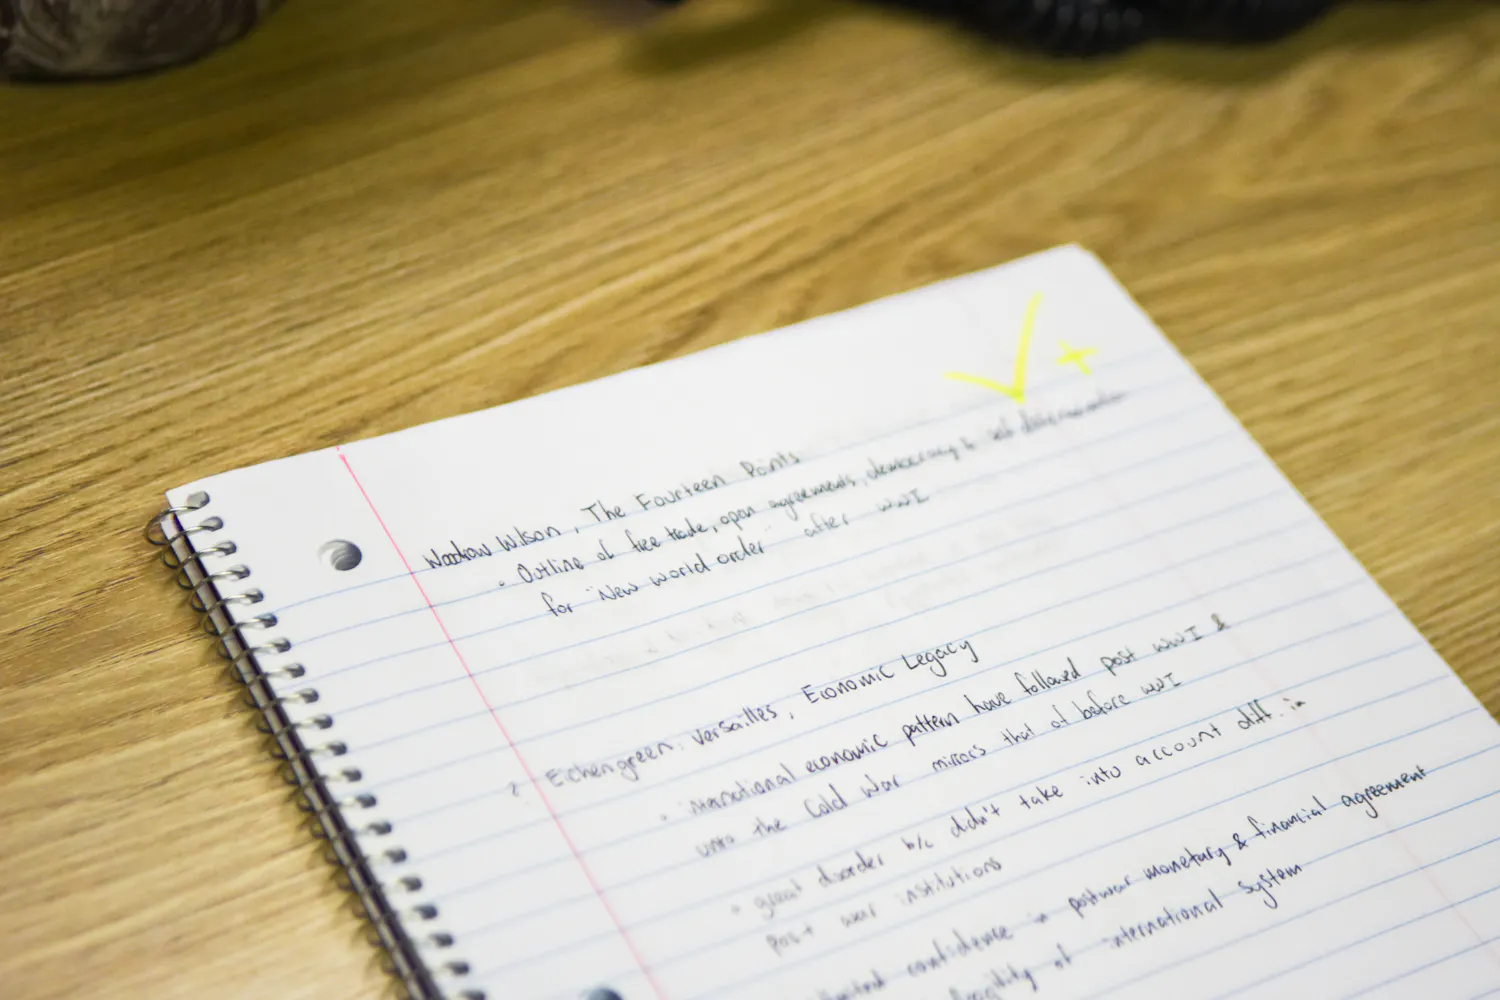 Woodrow Wilson, The Fourteen Points
• Outline of free trade, open agreements, democracy & self determination
for "New world order" after WWI
? Eichengreen, Versailles, Economic Legacy
• international economic pattern have followed post WWI &
unto the Cold War mirrors that of before WWI
• great disorder b/c didn't take into account diff. in
post war institutions
confidence in postwar monetary & financial agreement
fragility of international system